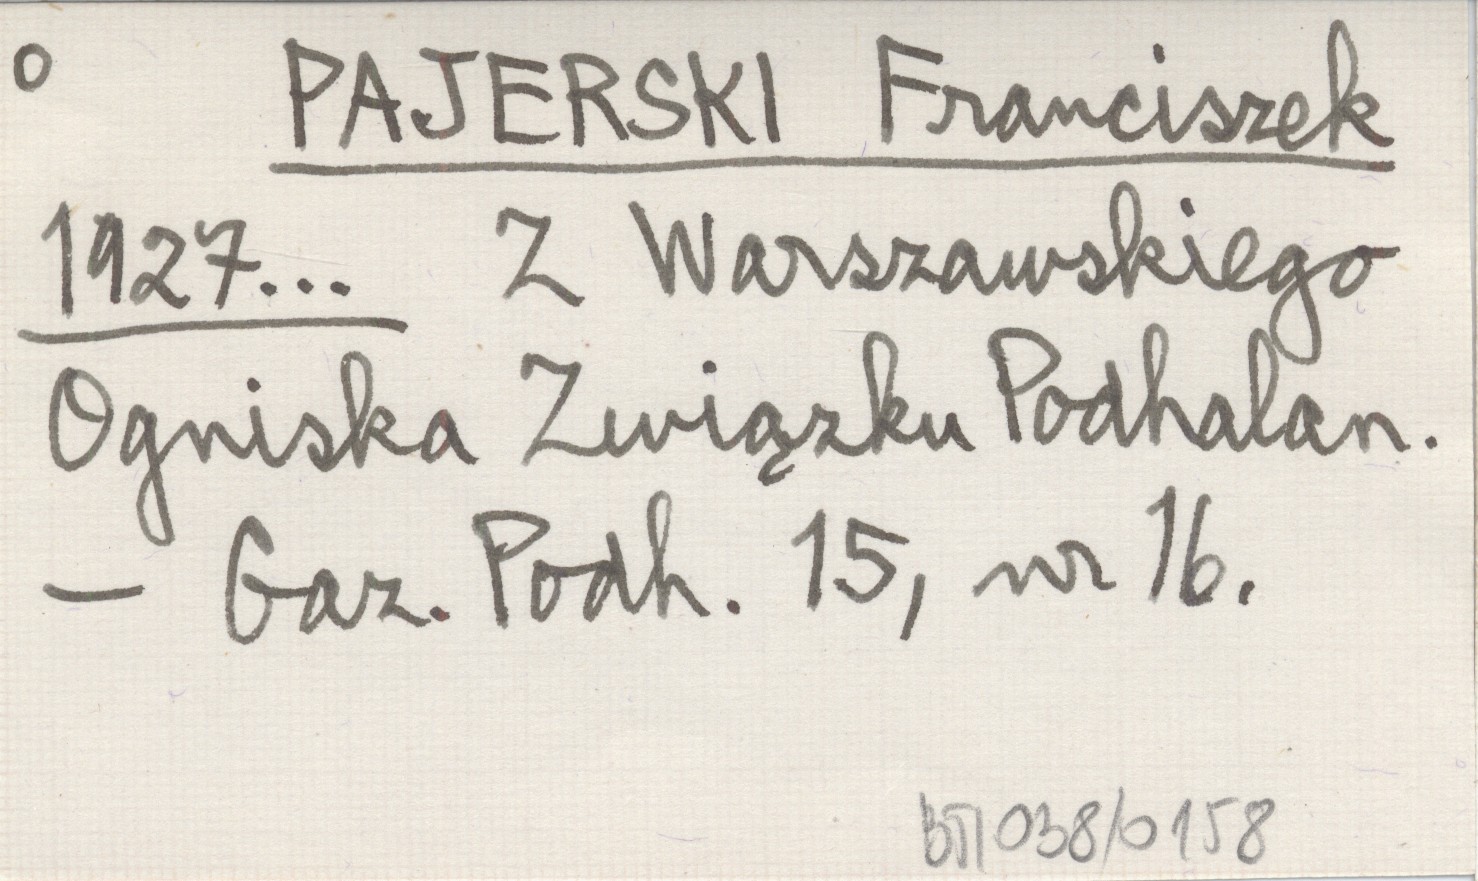 o PAJERSKI Franciszek
1927... Z Warszawskiego
Ogniska Związku Podhalan.
– Gaz. Podh. 15, nr 16.
038/0158